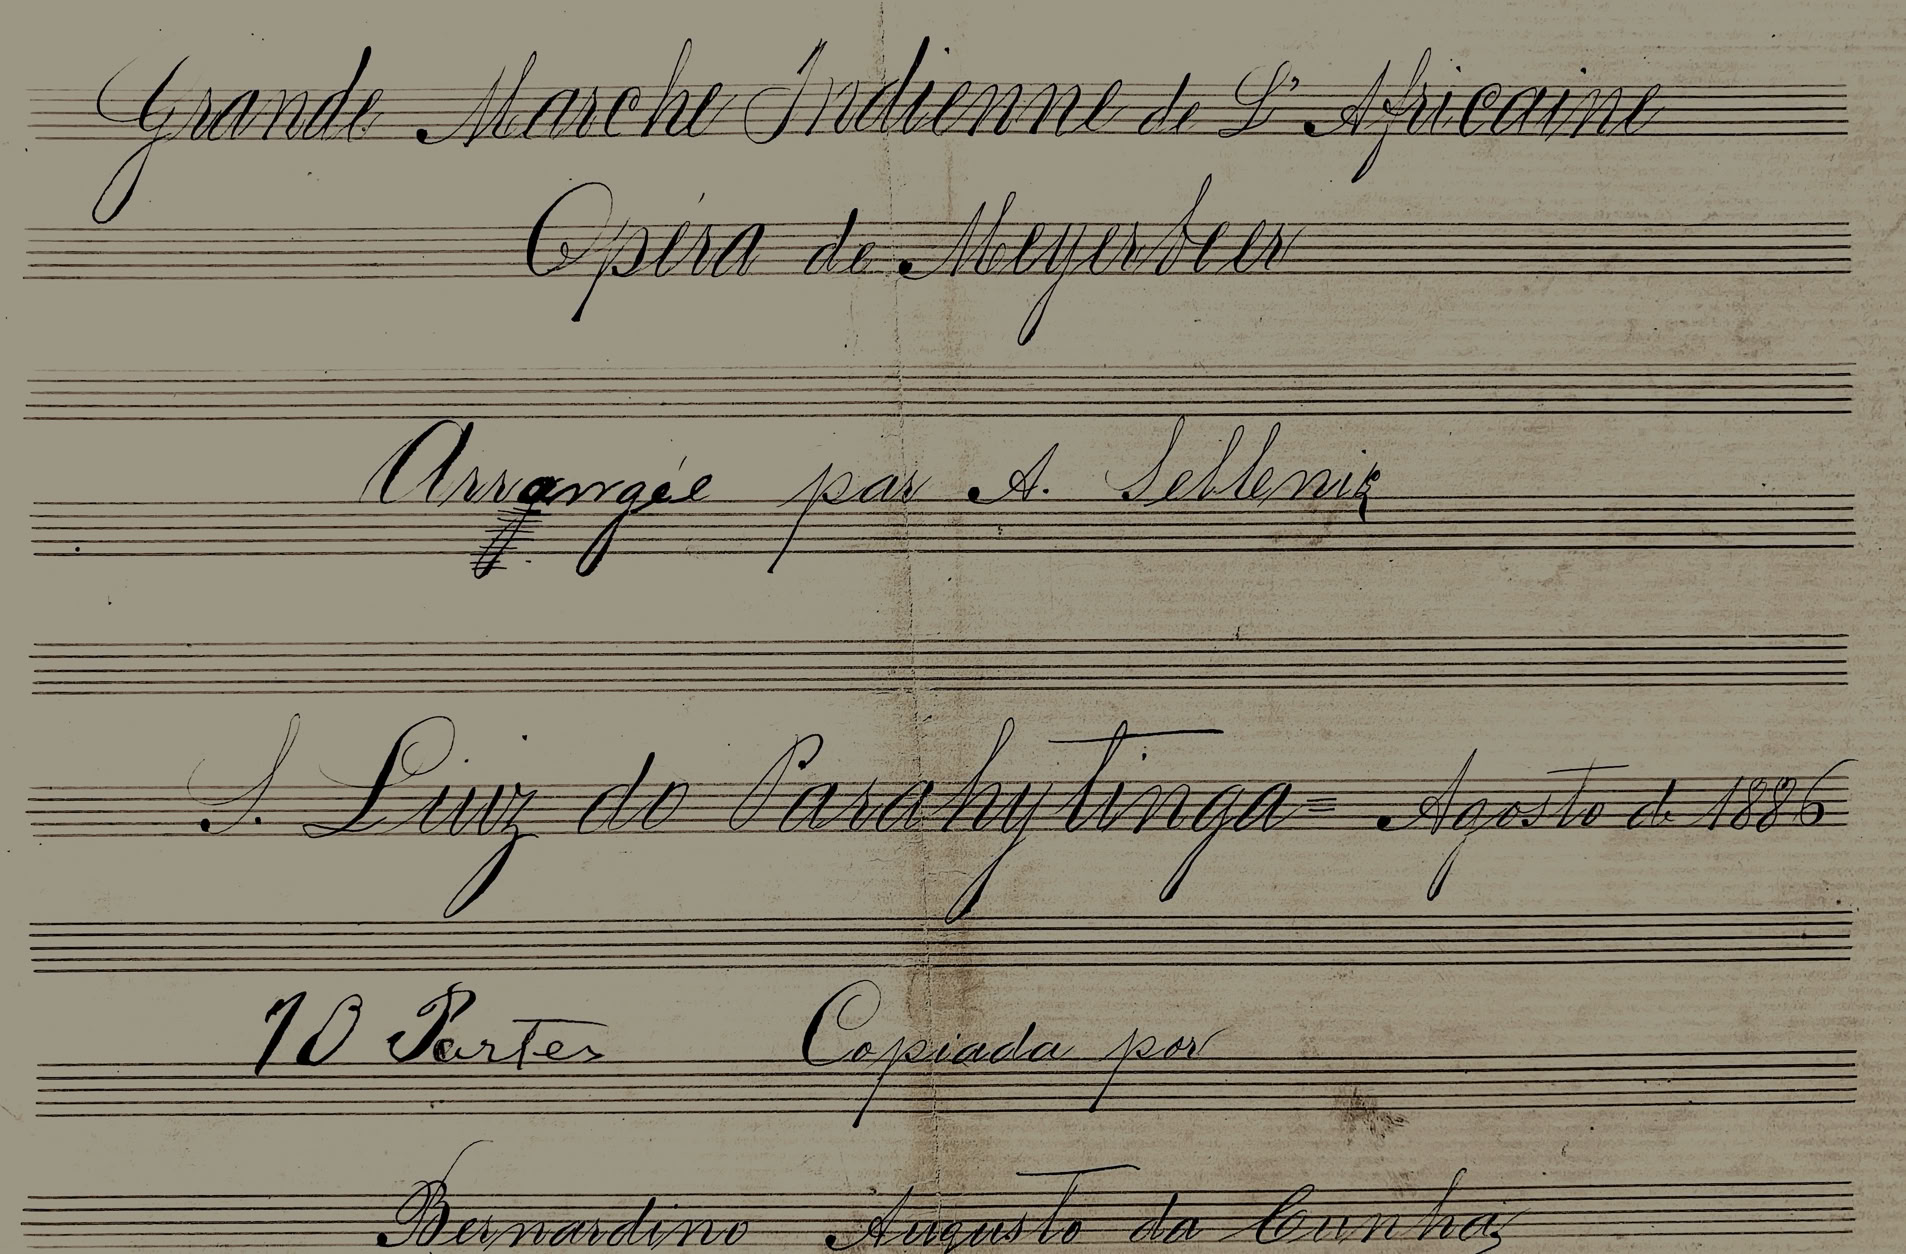 Grande Marche Indienne de L'Africaine
Opéra de Meyerbeer
Arrangée par A. Sellenik
S. Luiz do Parahytinga = Agosto de 1886
10 Partes Copiada por
Bernardino Augusto da Cunha